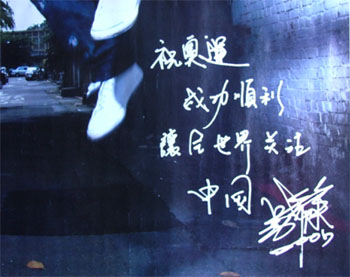 祝奥運
成功順利
讓全世界关注
中国